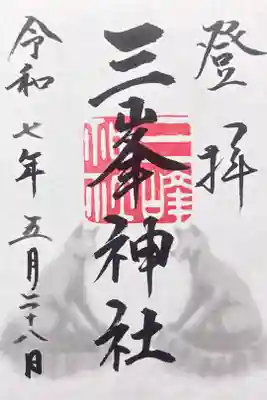 登拝
三峯神社
令和七年五月二十八日